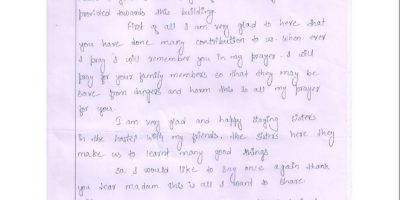 provided towards this building.
First of all I am very glad to here that
you have done many contribution to us. When ever
I pray I will remember you in my prayer. I will
pray for your family members so that they may be
save from dangers and harm this is all my prayer
for you.
I am very glad and happy staying sisters
in the hostel with my friends, the sisters here they
make us to learnt many good things.
So I would like to say once again thank
you dear madam this is all I want to share